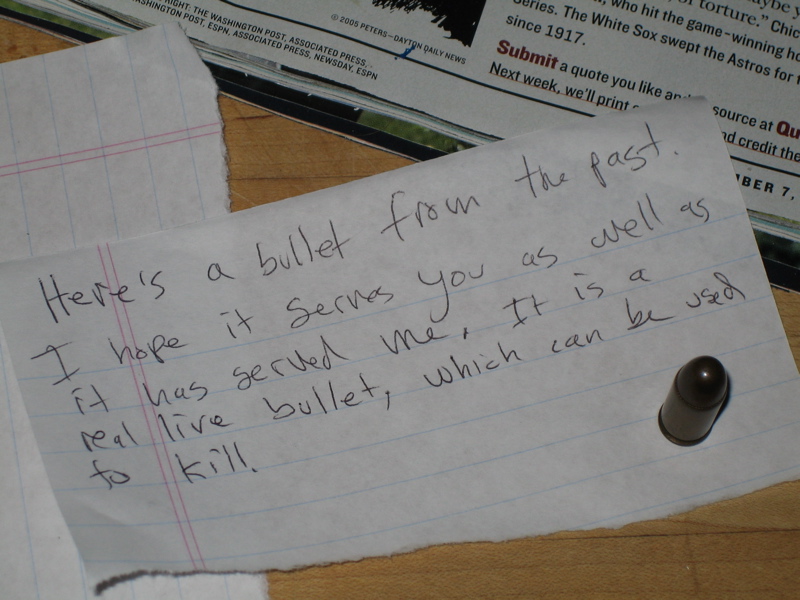 RIGHT: THE WASHINGTON POST, ASSOCIATED PRESS,
WASHINGTON POST, ESPN, ASSOCIATED PRESS, NEWSDAY, ESPN
© 2005 PETERS—DAYTON DAILY NEWS
of torture." Chic
, who hit the game-winning
series. The White Sox swept the Astros for
since 1917.
Submit a quote you like and source at
Next week, we'll print and credit the
BER 7,
Here's a bullet from the past.
I hope it serves you as well as
it has served me. It is a
real live bullet, which can be used
to kill.